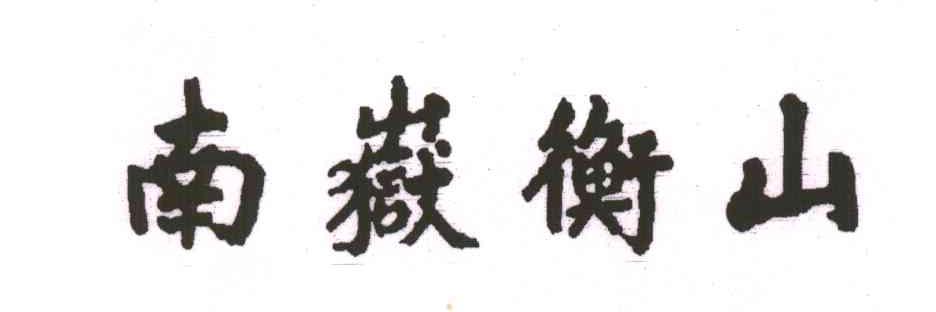 南嶽衡山